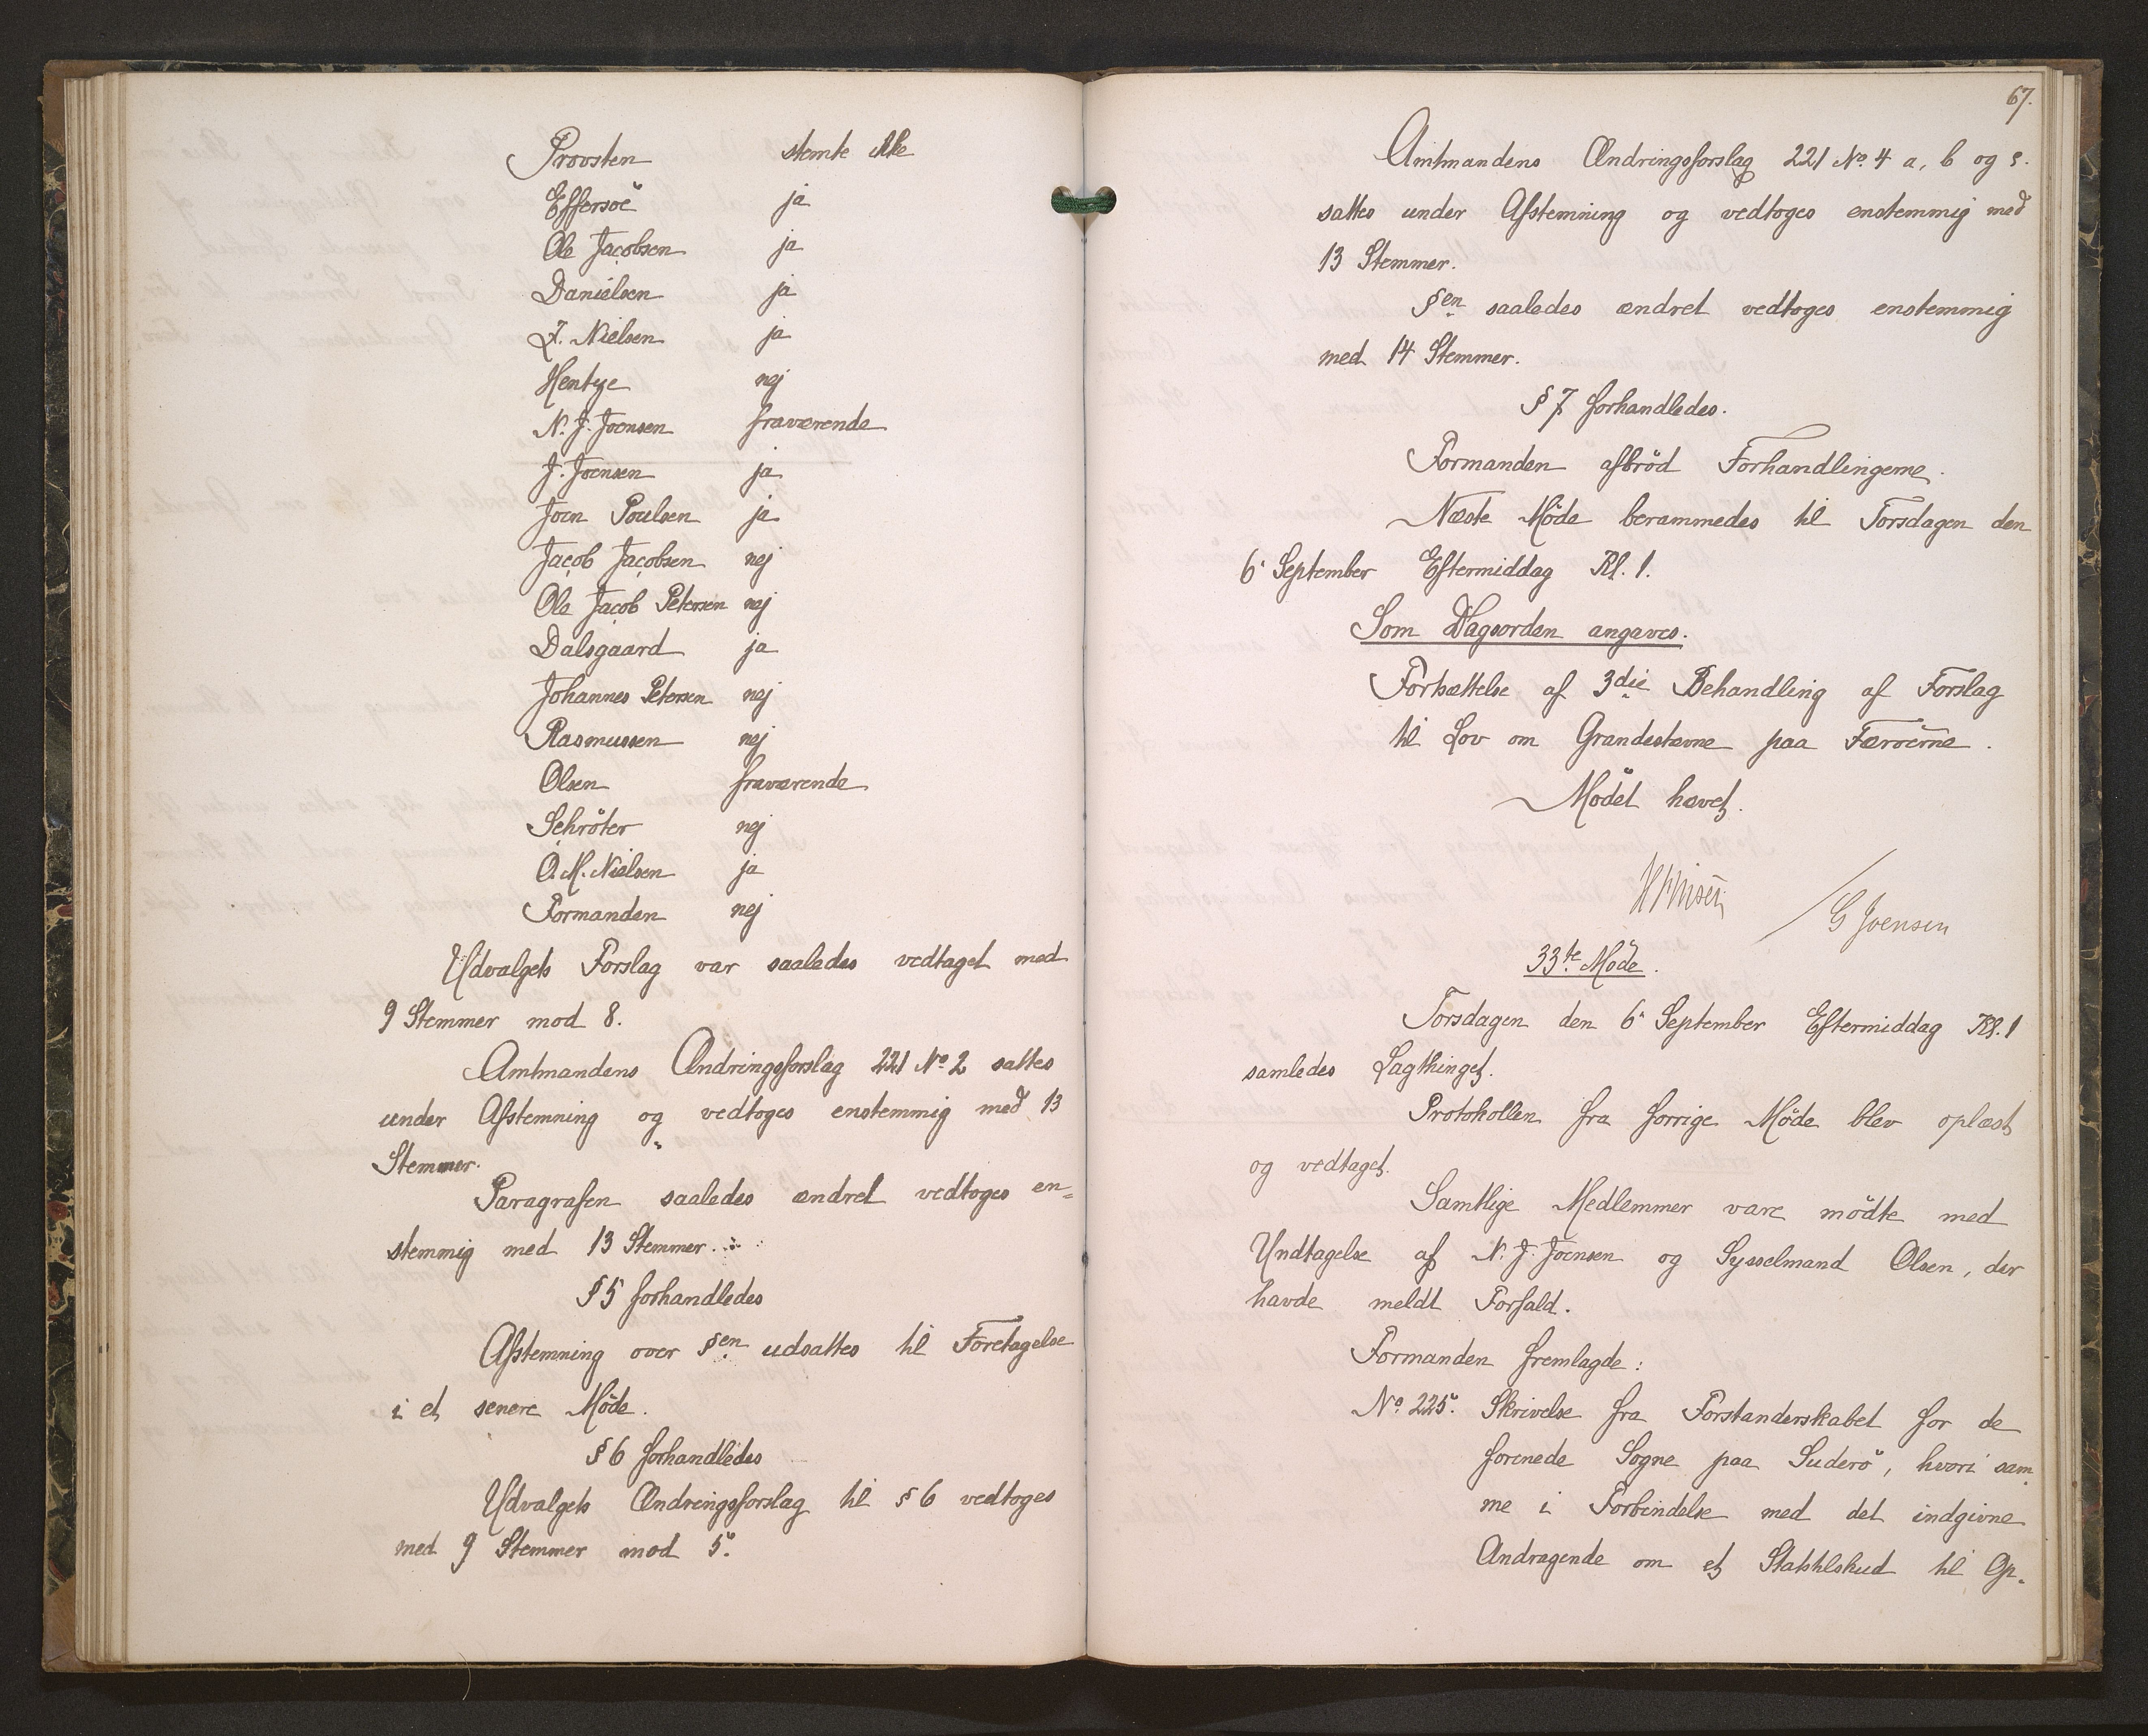 Provsten stemte ikke
Effersöe ja
Ole Jacobsen ja
Danielsen ja
J. Nielsen ja
Hentze nej
N. J. Joensen fraværende
J. Joensen ja
Joen Poulsen ja
Jacob Jacobsen nej
Ole Jacob Petersen nej
Dalsgaard ja
Johannes Petersen nej
Rasmussen nej
Olsen fraværende
Schröter nej
O. M. Nielsen ja
Formanden nej
Udvalgets Forslag var saaledes vedtaget med
9 Stemmer mod 8.
Amtmandens Ændringsforslag 221 No. 2 sattes
under Afstemning og vedtoges enstemmig med 13
Stemmer.
Paragrafen saaledes ændret vedtoges en=
stemmig med 13 Stemmer.
§ 5 forhandledes
Afstemning over §en udsattes til Foretagelse
i et senere Möde.
§ 6 forhandledes
Udvalgets Ændringsforslag til § 6 vedtoges
med 9 Stemmer mod 5.
67.
Amtmandens Ændringsforslag 221 No. 4 a, b og c.
sattes under Afstemning og vedtoges enstemmig med
13 Stemmer.
§en saaledes ændret vedtoges enstemmig
med 14 Stemmer.
§ 7 forhandledes.
Formanden afbröd Forhandlingerne.
Næste Möde berammedes til Torsdagen den
6. September Eftermiddag Kl. 1.
Som Dagsorden angaves.
Fortsættelse af 3die Behandling af Forslag
til Lov om Grandestævne paa Færöerne.
Mödet hævet.
G Joensen
33te Möde.
Torsdagen den 6. September Eftermiddag Kl. 1
samledes Lagthinget.
Protokollen fra forrige Möde blev oplæst
og vedtaget.
Samtlige Medlemmer vare mödte med
Undtagelse af N. J. Joensen og Sysselmand Olsen, der
havde meldt Forfald.
Formanden fremlagde:
No. 225. Skrivelse fra Forstanderskabet for de
forenede Sogne paa Suderö, hvori sam
me i Forbindelse med det indgivne
Andragende om et Statstilskud til Op-